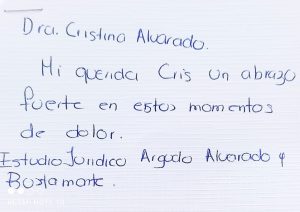 Dra. Cristina Alvarado.
Mi querida Cris un abrazo
fuerte en estos momentos
de dolor.
Estudio Jurídico Argudo Alvarado y
Bustamante.